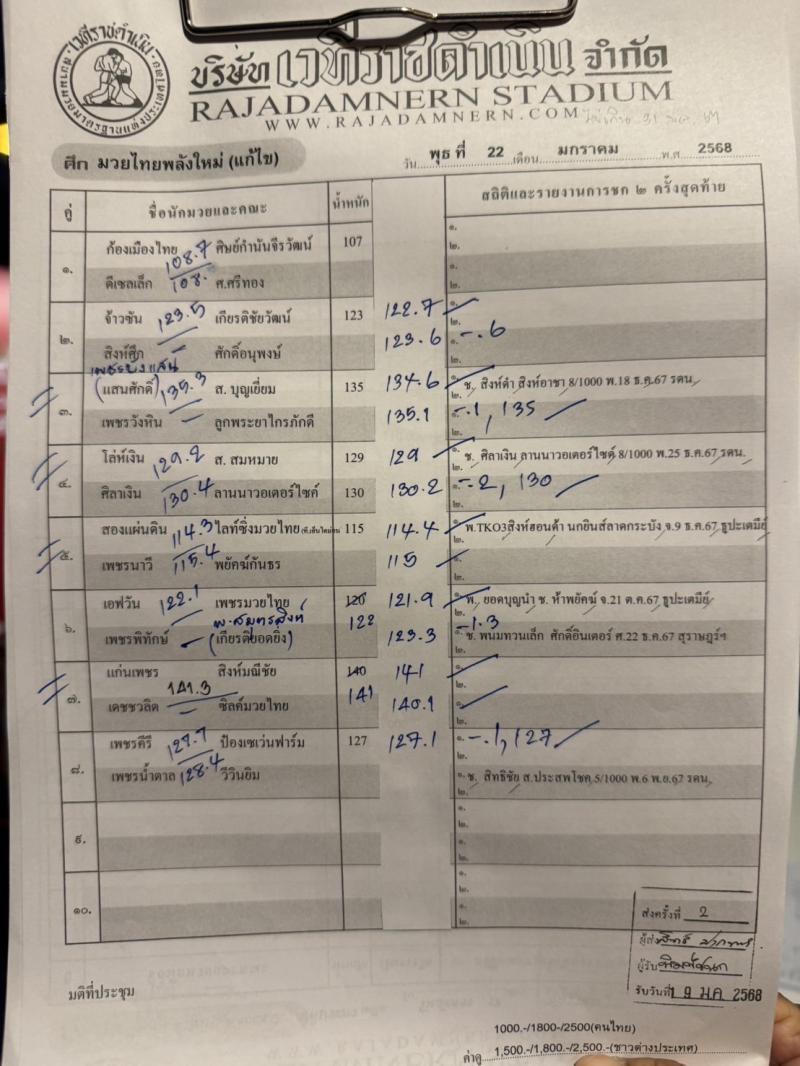 เวทีราชดำเนิน
บริษัท เวทีราชดำเนิน จำกัด
RAJADAMNERN STADIUM
WWW.RAJADAMNERN.COM
ศึก มวยไทยพลังใหม่ (แก้ไข)
วัน พุธ ที่ 22 เดือน มกราคม พ.ศ 2568
คู่ ชื่อนักมวยและคณะ น้ำหนัก สถิติและรายงานการชก ๒ ครั้งสุดท้าย
๑.
ก้องเมืองไทย 108.7 ศิษย์กำนันจีรวัฒน์ 107 ๑.
๒.
ดีเซลเล็ก 108. ศ.ศรีทอง ๑.
๒.
๒.
จ้าวซัน 123.5 เกียรติชัยวัฒน์ 123 122.7 ๑.
๒.
สิงห์ศึก ศักดิ์อนุพงษ์ 123.6 ๑. -.6
๓.
(แสนศักดิ์) 135.3 ส. บุญเยี่ยม 135 134.6 ช. สิงห์ดำ สิงห์อาชา 8/1000 พ.18 ธ.ค.67 รดน.
๒.
เพชรวังหิน ลูกพระยาไกรภักดี 135.1 -.1, 135
๔.
โล่ห์เงิน 129.2 ส. สมหมาย 129 129 ช. ศิลาเงิน ลานนาวอเตอร์ไซด์ 8/1000 พ.25 ธ.ค.67 รดน.
๒.
ศิลาเงิน 130.4 ลานนาวอเตอร์ไซค์ 130 130.2 -.2, 130
๕.
สองแผ่นดิน 114.3 ไลท์ซิ่งมวยไทย 115 114.4 พ.TKO3สิงห์ฮอนด้า นกยินส์ลาดกระบัง จ.9 ธ.ค.67 ธูปะเตมีย์
๒.
เพชรนาวี 115.4 พยัคฆ์กันธร 115
๖.
เอฟวัน 122.1 เพชรมวยไทย 120 121.9 พ. ยอดบุญนำ ช. ห้าพยัคฆ์ จ.21 ต.ค.67 ธูปะเตมีย์
พ.สมุทรสิงห์ 122
เพชรพิทักษ์ (เกียรติยอดยิ่ง) 123.3 -1.3
ช. พนมทวนเล็ก ศักดิ์อินเตอร์ ศ.22 ธ.ค.67 สุราษฎร์ฯ
๗.
แก่นเพชร 141.3 สิงห์มณีชัย 140 141 ๑.
๒.
เดชชวลิต ซิลค์มวยไทย 141 140.1
๒.
๘.
เพชรคีรี 127.7 ป้องเซเว่นฟาร์ม 127 127.1 ๑. -.1, 127
๒.
เพชรน้ำตาล 128.4 วีวินยิม ๑. ช. สิทธิชัย ส.ประสพโชค 5/1000 พ.6 พ.ย.67 รดน.
๒.
๙.
๑.
๒.
๑.
๒.
๑๐.
๑.
๒.
๑.
๒.
ส่งครั้งที่ 2
ผู้ส่ง
ผู้รับ
รับวันที่ 19 ม.ค 2568
มติที่ประชุม
1000.-/1800-/2500(คนไทย)
ค่าดู 1,500.-/1,800.-/2,500.-(ชาวต่างประเทศ)